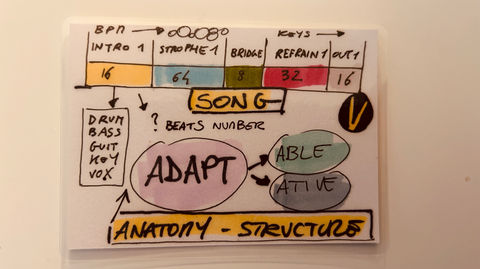 BPM → KEYS →
INTRO 1 STROPHE 1 BRIDGE REFRAIN 1 OUT 1
16 64 8 32 16
SONG
V
DRUM
BASS
GUIT
KEY
VOX
? BEATS NUMBER
ADAPT
ABLE
ATIVE
ANATOMY - STRUCTURE